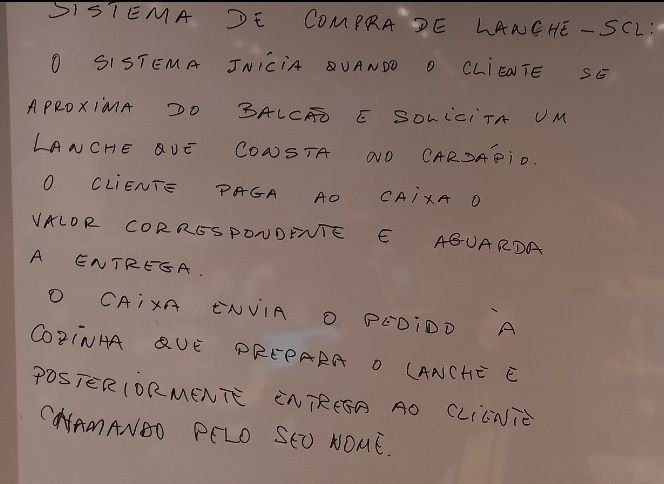 SISTEMA DE COMPRA DE LANCHE - SCL:
O SISTEMA INÍCIA QUANDO O CLIENTE SE
APROXIMA DO BALCÃO E SOLICITA UM
LANCHE QUE CONSTA NO CARDÁPIO.
O CLIENTE PAGA AO CAIXA O
VALOR CORRESPONDENTE E AGUARDA
A ENTREGA.
O CAIXA ENVIA O PEDIDO À
COZINHA QUE PREPARA O LANCHE E
POSTERIORMENTE ENTREGA AO CLIENTE
CHAMANDO PELO SEU NOME.